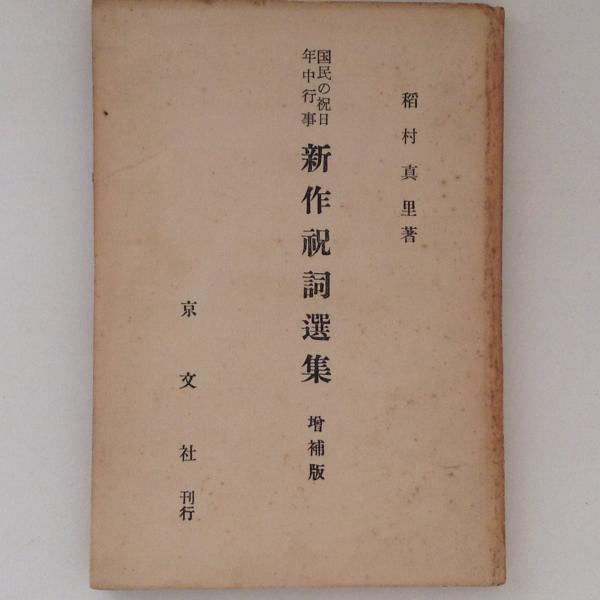 稻村真里著
国民の祝日
年中行事
新作祝詞選集 増補版
京文社 刊行